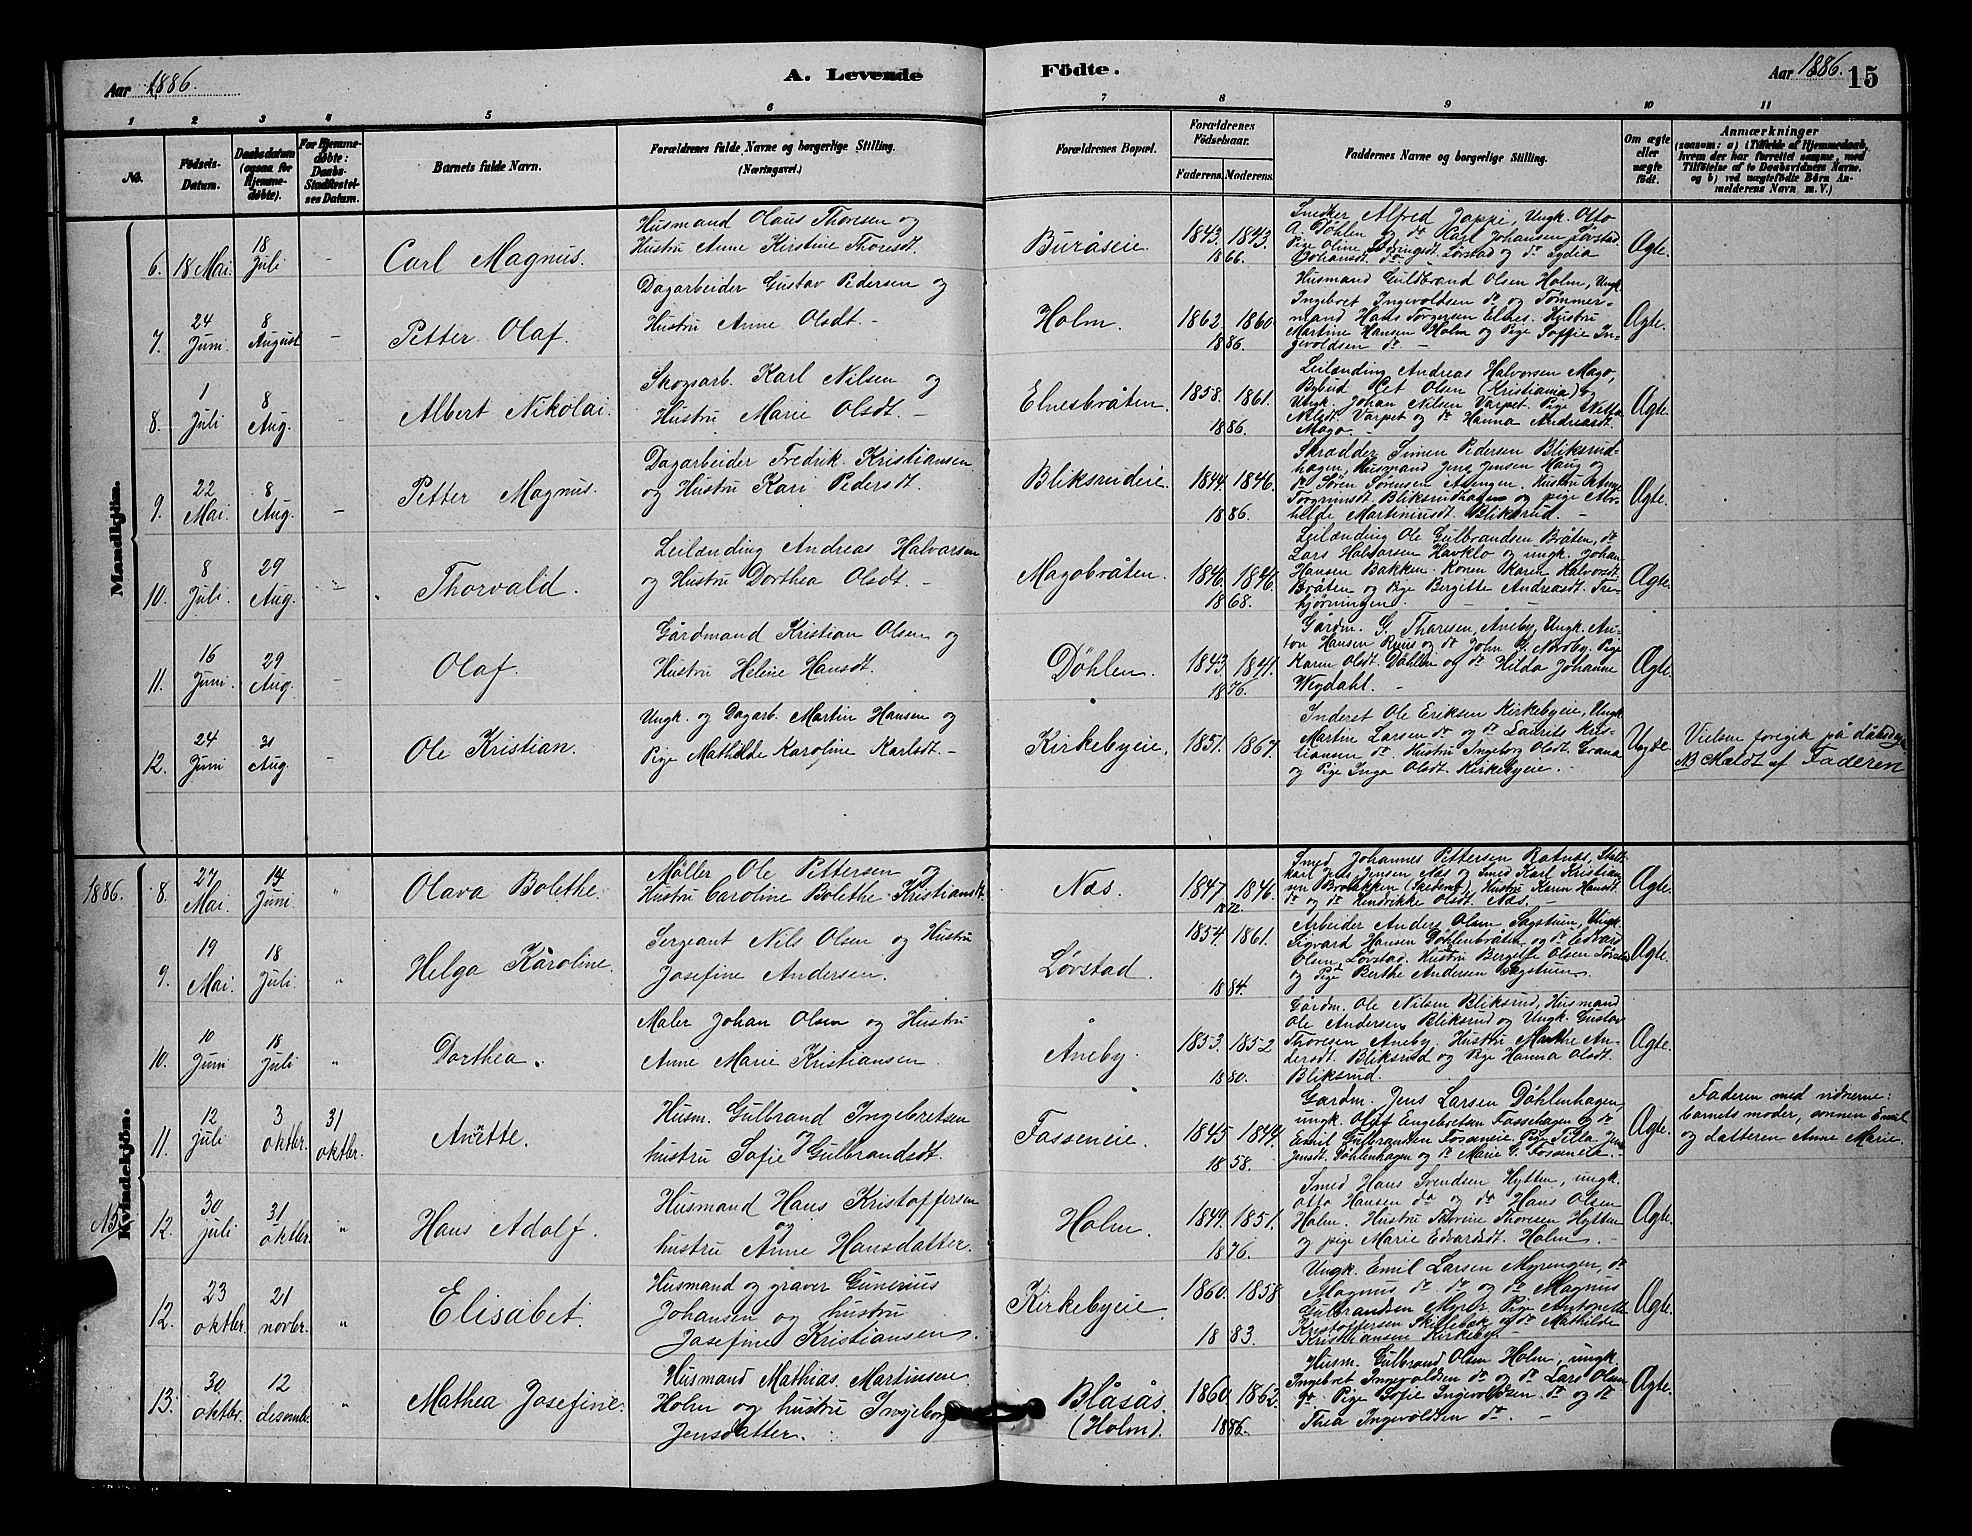 Aar 1886.
A. Levende
Födte.
Aar 1886.
15
1 2 3 4 5 6 7 8 9 10 11
No.
Födsels-Datum.
Daabsdatum (ogsaa for Hjemme-döbte).
For Hjemme-döbte: Daabs-Stadfæstel-ses Datum.
Barnets fulde Navn.
Forældrenes fulde Navne og borgerlige Stilling.
(Næringsvei.)
Forældrenes Bopæl.
Forældrenes Födselsaar.
Faderens. Moderens.
Faddernes Navne og borgerlige Stilling.
Om ægte eller uægte födt.
Anmærkninger
(saasom: a) i Tilfælde af Hjemmedaab,
hvem der har forrettet samme, med
Tilföielse af to Daabsvidners Navne.
og b) ved uægtefödte Börn An-
melderens Navn m. V.)
Mandkjön.
6. 18 Mai. 18 Juli - Carl Magnus.
Husmand Olaus Thoresen og
Hustru Anne Kirstine Thoresdt.
Buråseie. 1843. 1843. 1866.
Snedker Alfred Jappe, Ungk. Otto
A. Döhlen og do Carl Johansen Lövstad.
Pige Oline
Johansdt. do Lövstad og do Lydia
Ægte.
7. 24 Juni. 8 August - Petter Olaf.
Dagarbeider Gustav Pedersen og
Hustru Anne Olsdt. -
Holm. 1862. 1860. 1886.
Husmand Guldbrand Olsen Holm, Ungk.
Ingebret Ingevoldsen do og Tömmer-
mand Hans Torgersen Elnes. Hustru
Martine Hansen Holm og Pige Soffie In-
gevoldsen do -
Ægte.
8. 1 Juli 8 Aug. - Albert Nikolai.
Skogsarb. Karl Nilsen og
Hustru Marie Olsdt. -
Elnesbråten. 1858. 1861. 1886.
Leilænding Andreas Halvorsen Mago,
Bybud Olsen (Kristiania) og
Ungk. Johan Nilsen Varpet. Pige Netta
Nilsdt. Varpet og do Hanna Andreasdt.
Mago. -
Ægte.
9. 22 Mai. 8 Aug. - Petter Magnus.
Dagarbeider Fredrik Kristiansen
og Hustru Kari Pedersdt.
Bliksrudeie. 1844. 1846. 1886.
Skrædder Simen Pedersen Bliksrud-
hagen, Husmand Jens Jensen Haug og
do Sören Sörensen Asengen. Hustru Anne
Torgrimsdt. Bliksrudhagen og pige Ma-
thilde Martiniusdt. Bliksrud. -
Ægte.
10. 8 Juli. 29 Aug. - Thorvald.
Leilænding Andreas Halvorsen
og Hustru Dorthea Olsdt. -
Magobråten. 1846. 1846. 1868.
Leilænding Ole Gulbrandsen Bråten, do
Lars Halvorsen Havklo og ungk. Johan
Hansen Bakken. Konen Karen Halvorsdt.
Bråten og Pige Bergitte Andreasdt. Tre-
hjörningen.
Ægte.
11. 16 Juni. 29 Aug. - Olaf.
Gårdmand Kristian Olsen og
Hustru Helene Hansdt.
Döhlen. 1843. 1847. 1876.
Gårdm. G. Thoresen, Aneby, Ungk. An-
ton Hansen Ruus og do John G. Nordby. Pige
Karen Olsdt. Döhlen og do Hilda Johanne
Wegdahl. -
Ægte.
12. 24 Juni 31 Aug. - Ole Kristian.
Ungk. og Dagarb. Martin Hansen og
Pige Mathilde Karoline Karlsdt. -
Kirkebyeie. 1851. 1867.
Inderst Ole Eriksen Kirkebyeie, Ungk.
Martin Larsen do og do Laurits Kris-
tiansen do. Hustru Ingeborg Olsdt. Grana
og Pige Inga Olsdt. Kirkebyeie. -
Uægte.
Vielsen foregik på dåbsdagen
NB Mældt af Faderen
Kvindekjön.
1886.
8. 27 Mai. 14 Juni. " Olava Bolethe.
Möller Ole Pettersen og
Hustru Caroline Bolethe Kristiansdt.
Næs. 1847. 1846. 1872.
Smed Johannes Pettersen Ratnæs, Stall-
karl Jens Jensen Næs og Smed Karl Kristian-
sen Brobakken (Skedsmo), Hustru Karen Hansdt.
do og do Hendrikke Olsdt. Næs. -
Ægte.
9. 19 Mai. 18 Juli. " Helga Karoline.
Sergeant Nils Olsen og Hustru
Josefine Andersen.
Lövstad. 1854. 1861. 1884.
Arbeider Anders Olsen Sagstuen, Ungk.
Sigvard Hansen Döhlenbråten og do Edvard
Olsen Lövstad. Hustru Bergette Olsen Lövstad
og Pige Berthe Andersen Sagstuen.
Ægte.
10. 10 Juni 18 Juli " Dorthea.
Maler Johan Olsen og Hustru
Anne Marie Kristiansen.
Åneby. 1853. 1852 1880.
Gårdm. Ole Nilsen Bliksrud, Husmand
Ole Andersen Bliksrud og Ungk. Gustav
Thoresen Aneby. Hustru Marthe An-
dersdt. Bliksrud og Pige Hanna Olsdt.
Bliksrud.
Ægte.
11. 12 juli 3 oktbr. 31 oktbr. Anette.
Husm. Gulbrand Ingebretsen
og
hustru Sofie Gulbrandsdt.
Fosseneie. 1845. 1844. 1858.
Gårdm. Jens Larsen Döhlenhagen,
ungk. Olaf Engebretsen Fossehagen og do
Emil Gulbrandsen Fosseneie. Pige Tilla
Jensdt. Döhlenhagen og do Marie G. Fosseneie.
Ægte.
Faderen med vidnerne:
barnets moder, sønnen Emil
og datteren Anne Marie.
NB
12. 30 juli 31 oktbr. " Hans Adolf.
Husmand Hans Kristoffersen
og
hustru Anne Hansdatter.
Holm. 1849. 1851. 1876.
Smed Hans Svendsen Hytten, ungk.
Otto Hansen do og do Hans Olsen
Holm. Hustru Thorine Thoresen Hytten
og pige Marie Edvardsdt. Holm. -
Ægte.
12. 23 oktbr. 21 novbr. " Elisabet.
Husmand og graver Gunerius
Johansen og hustru
Josefine Kristiansen.
Kirkebyeie 1860. 1858 1883.
Ungk. Emil Larsen Myrengen, do
Magnus do do og do Magnus
Gulbrandsen Myrer. Pige Antonette
Kristoffersen Skillebæk og do Mathilde
Kristiansen Kirkeby. -
Ægte.
13. 30 oktbr. 12 desembr. " Mathea Josefine.
Husmand Mathias Martinsen
Holm og hustru Ingeborg
Jensdatter.
Blåsås. (Holm). 1860. 1862. 1886.
Husm. Gulbrand Olsen Holm, ungk.
Ingebret Ingevoldsen do og do Lars Olsen
do. Pige Sofie Ingevoldsen do og do
Thea Ingevoldsen do. -
Ægte.